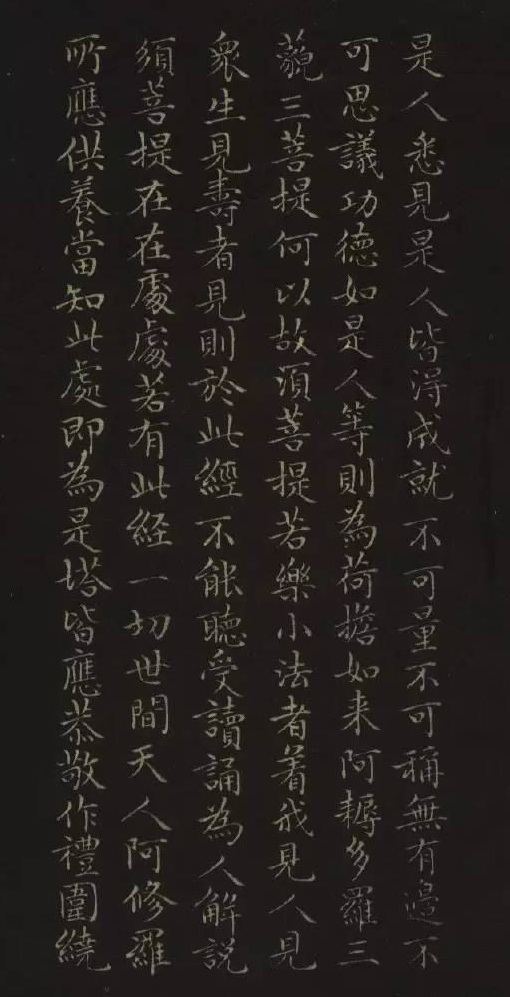 是人悉見是人皆得成就不可量不可稱無有邊不
可思議功德如是人等則為荷擔如来阿耨多羅三
藐三菩提何以故湏菩提若樂小法者着我見人見
衆生見壽者見則於此經不能聽受讀誦為人解説
須菩提在在處處若有此経一切世間天人阿修羅
所應供養當知此處即為是塔皆應恭敬作禮圍繞